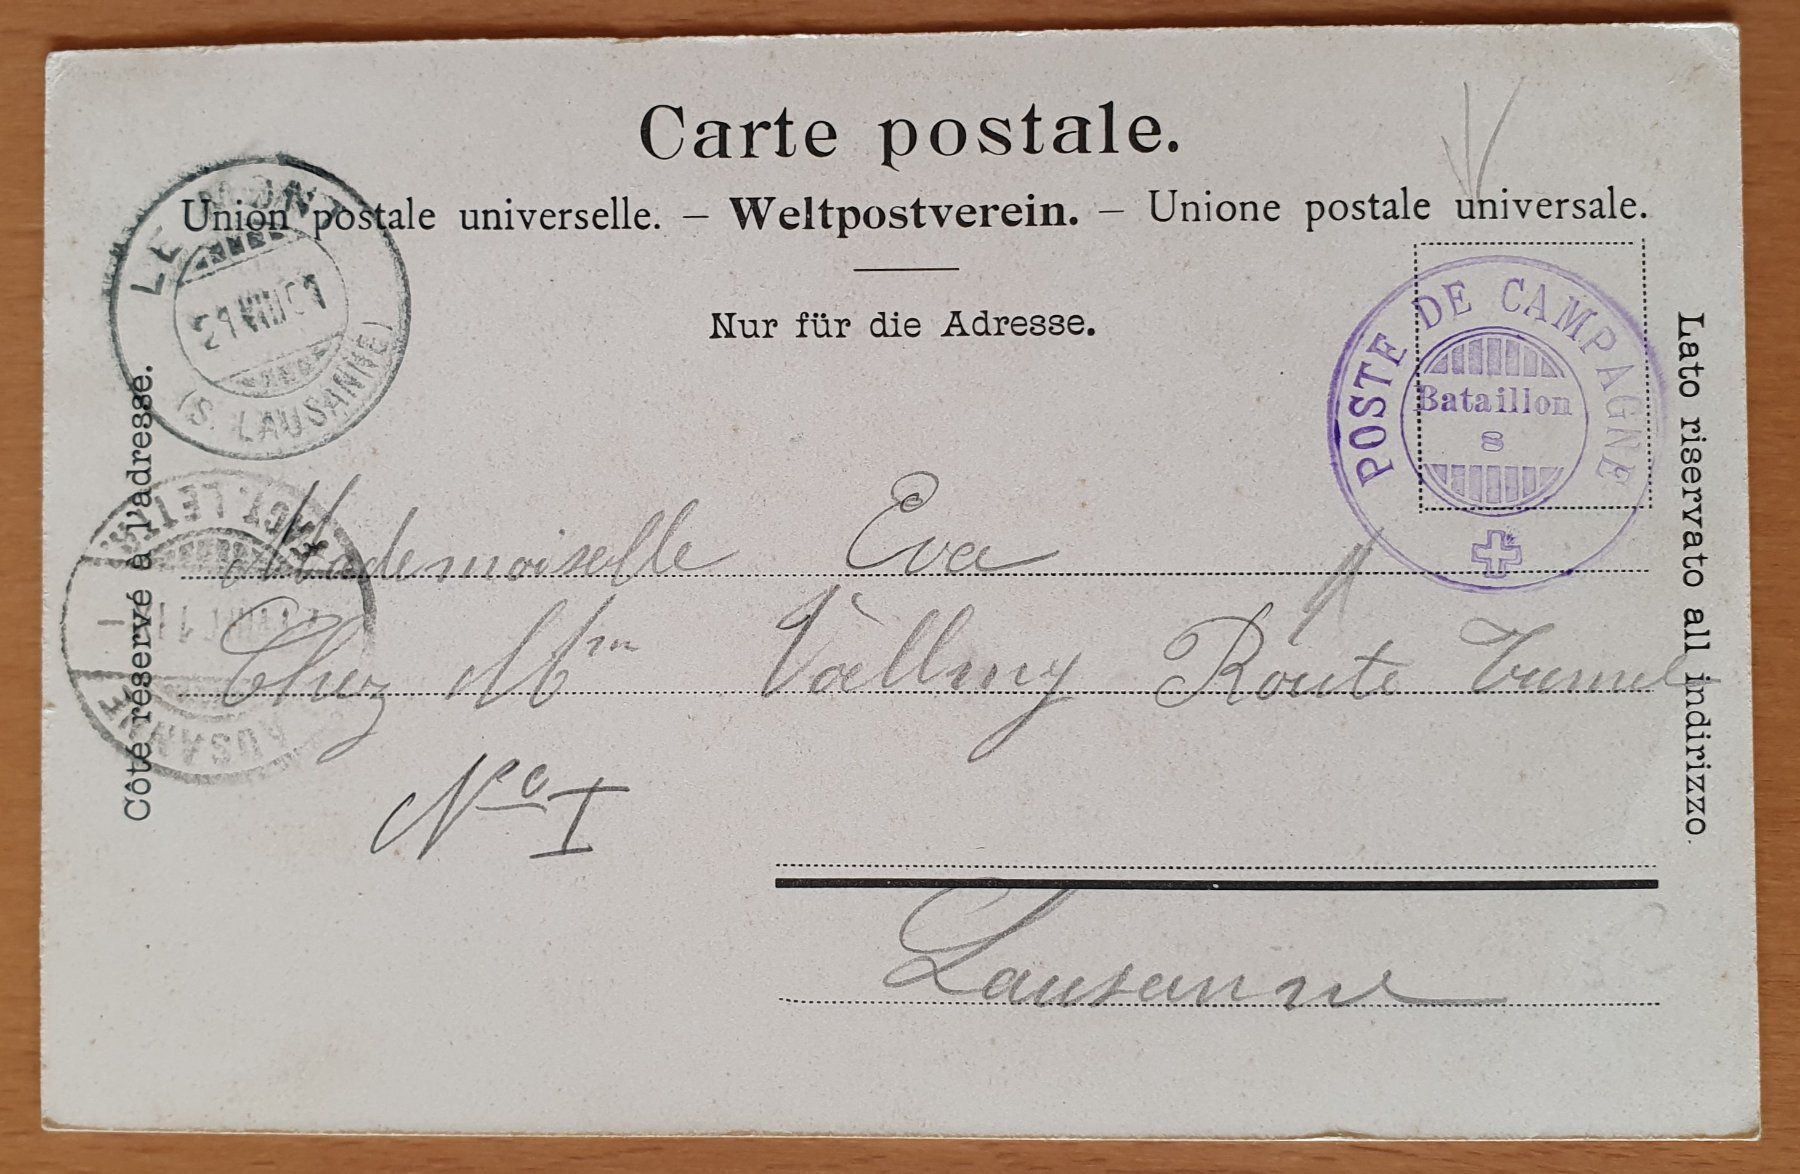 Carte postale.
Union postale universelle. – Weltpostverein. – Unione postale universale.
Nur für die Adresse.
Côté réservé à l'adresse.
Lato riservato all indirizzo.
LE MONT
21 VIII 01
(S. LAUSANNE)
POSTE DE CAMPAGNE
Bataillon
8
LAUSANNE
Mademoiselle Eva
Chez Mm Vœllmy Route Tunnel
No I
Lausanne